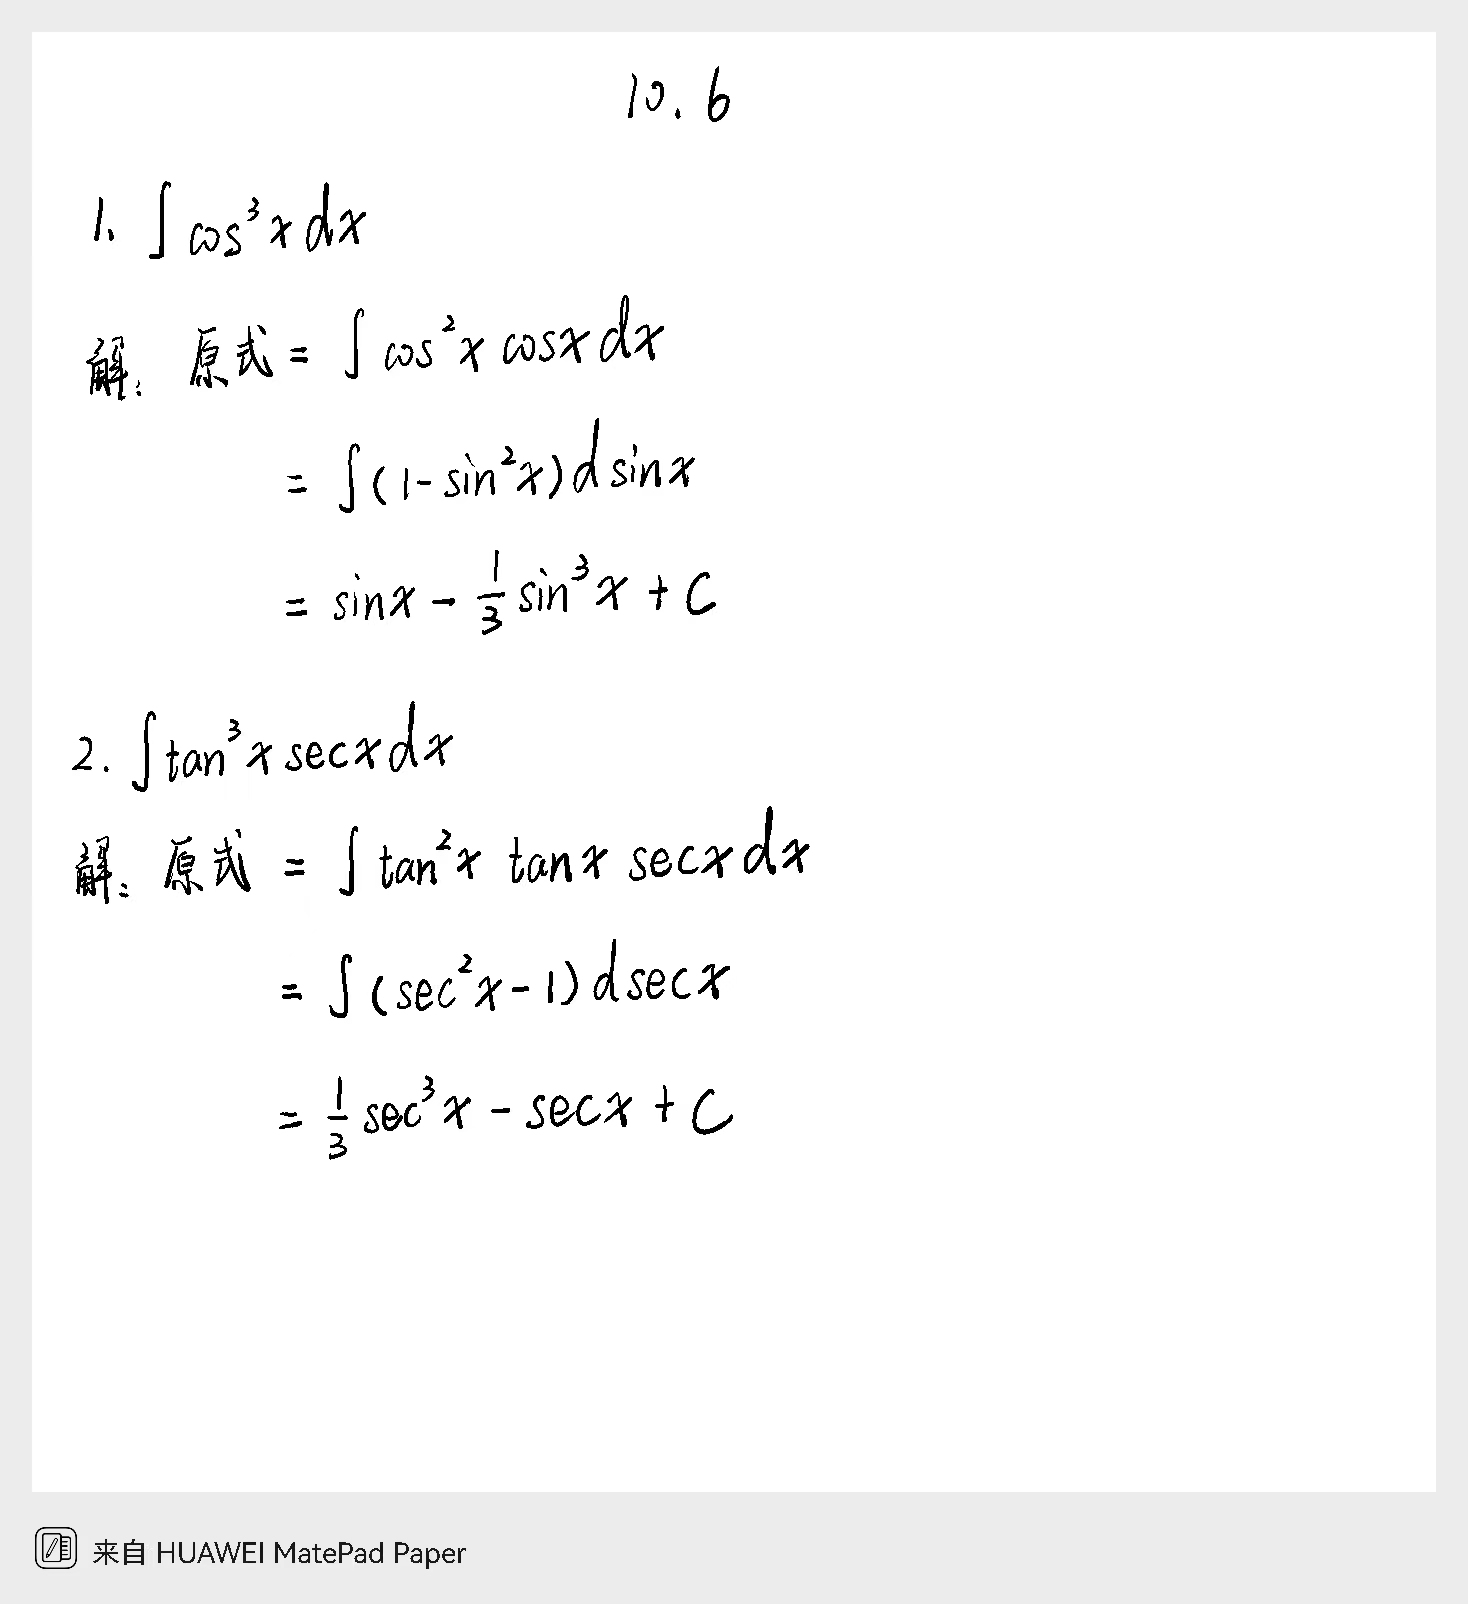 10.6
1、∫cos³xdx
解：原式 = ∫cos²x cosxdx
= ∫(1-sin²x)dsinx
= sinx - 1/3 sin³x + C
2. ∫tan³x secxdx
解：原式 = ∫tan²x tanx secxdx
= ∫(sec²x-1)dsecx
= 1/3 sec³x - secx + C
来自 HUAWEI MatePad Paper